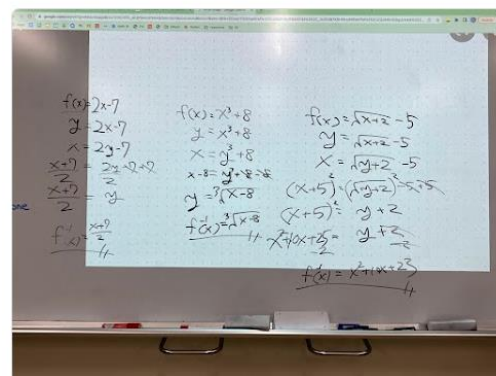 f(x)=2x-7
y=2x-7
x=2y-7
x+7/2 = 2y-7+7/2
x+7/2 = y
f⁻¹(x)=x+7/2
f(x)=x³+8
y=x³+8
x=y³+8
x-8=y³+8-8
y=³√x-8
f⁻¹(x)=³√x-8
f(x)=√x+2 -5
y=√x+2 -5
x=√y+2 -5
(x+5)²=(√y+2)²-5+5
(x+5)²=y+2
x²+10x+25=y+2
-2 -2
f⁻¹(x)=x²+10x+23